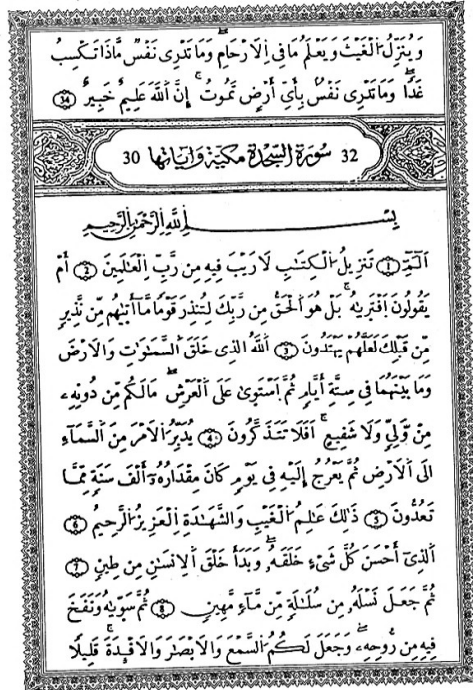 وَيُنَزِّلُ اَ۬لْغَيْثَ وَيَعْلَمُ مَا فِے اِ۬لَارْحَامِ وَمَا تَدْرِے نَفْسٌ مَّاذَا تَكْسِبُ
غَداً وَمَا تَدْرِے نَفْسٌ بِأَيِّ أَرْضٍ تَمُوتُ إِنَّ اَ۬للَّهَ عَلِيمٌ خَبِيرٌ 34
32 سُورَةُ السَّجْدَةِ مَكِّيَّة وَءَايَاتُهَا 30
بِسْمِ اِ۬للَّهِ اِ۬لرَّحْمَٰنِ اِ۬لرَّحِيمِ
أَلَٓمِّٓ 1 تَنزِيلُ اُ۬لْكِتَٰبِ لَا رَيْبَ فِيهِ مِن رَّبِّ اِ۬لْعَٰلَمِينَ 2 أَمْ
يَقُولُونَ اَ۪فْتَر۪يٰهُ بَلْ هُوَ اَ۬لْحَقُّ مِن رَّبِّكَ لِتُنذِرَ قَوْماً مَّا أَت۪يٰهُم مِّن نَّذِيرٍ
مِّن قَبْلِكَ لَعَلَّهُمْ يَهْتَدُونَ 3 اَ۬للَّهُ اُ۬لذِے خَلَقَ اَ۬لسَّمَٰوَٰتِ وَالَارْضَ
وَمَا بَيْنَهُمَا فِے سِتَّةِ أَيَّامٍ ثُمَّ اَ۪سْتَو۪يٰ عَلَى اَ۬لْعَرْشِ مَا لَكُم مِّن دُونِهِۦ
مِنْ وَّلِيٍّ وَلَا شَفِيعٍ اَفَلَا تَتَذَكَّرُونَ 4 يُدَبِّرُ اُ۬لَامْرَ مِنَ اَ۬لسَّمَآءِ
اِلَى اَ۬لَارْضِ ثُمَّ يَعْرُجُ إِلَيْهِ فِے يَوْمٍ كَانَ مِقْدَارُهُۥ أَلْفَ سَنَةٍ مِّمَّا
تَعُدُّونَ 5 ذَٰلِكَ عَٰلِمُ اُ۬لْغَيْبِ وَالشَّهَٰدَةِ اِ۬لْعَزِيزُ اُ۬لرَّحِيمُ 6
اُ۬لذِے أَحْسَنَ كُلَّ شَےْءٍ خَلَقَهُۥ وَبَدَأَ خَلْقَ اَ۬لِانسَٰنِ مِن طِينٍ 7
ثُمَّ جَعَلَ نَسْلَهُۥ مِن سُلَٰلَةٍ مِّن مَّآءٍ مَّهِينٍ 8 ثُمَّ سَوّ۪يٰهُ وَنَفَخَ
فِيهِ مِن رُّوحِهِۦ وَجَعَلَ لَكُمُ اُ۬لسَّمْعَ وَالَابْصَٰرَ وَالَافْـِٕدَةَ قَلِيلاً